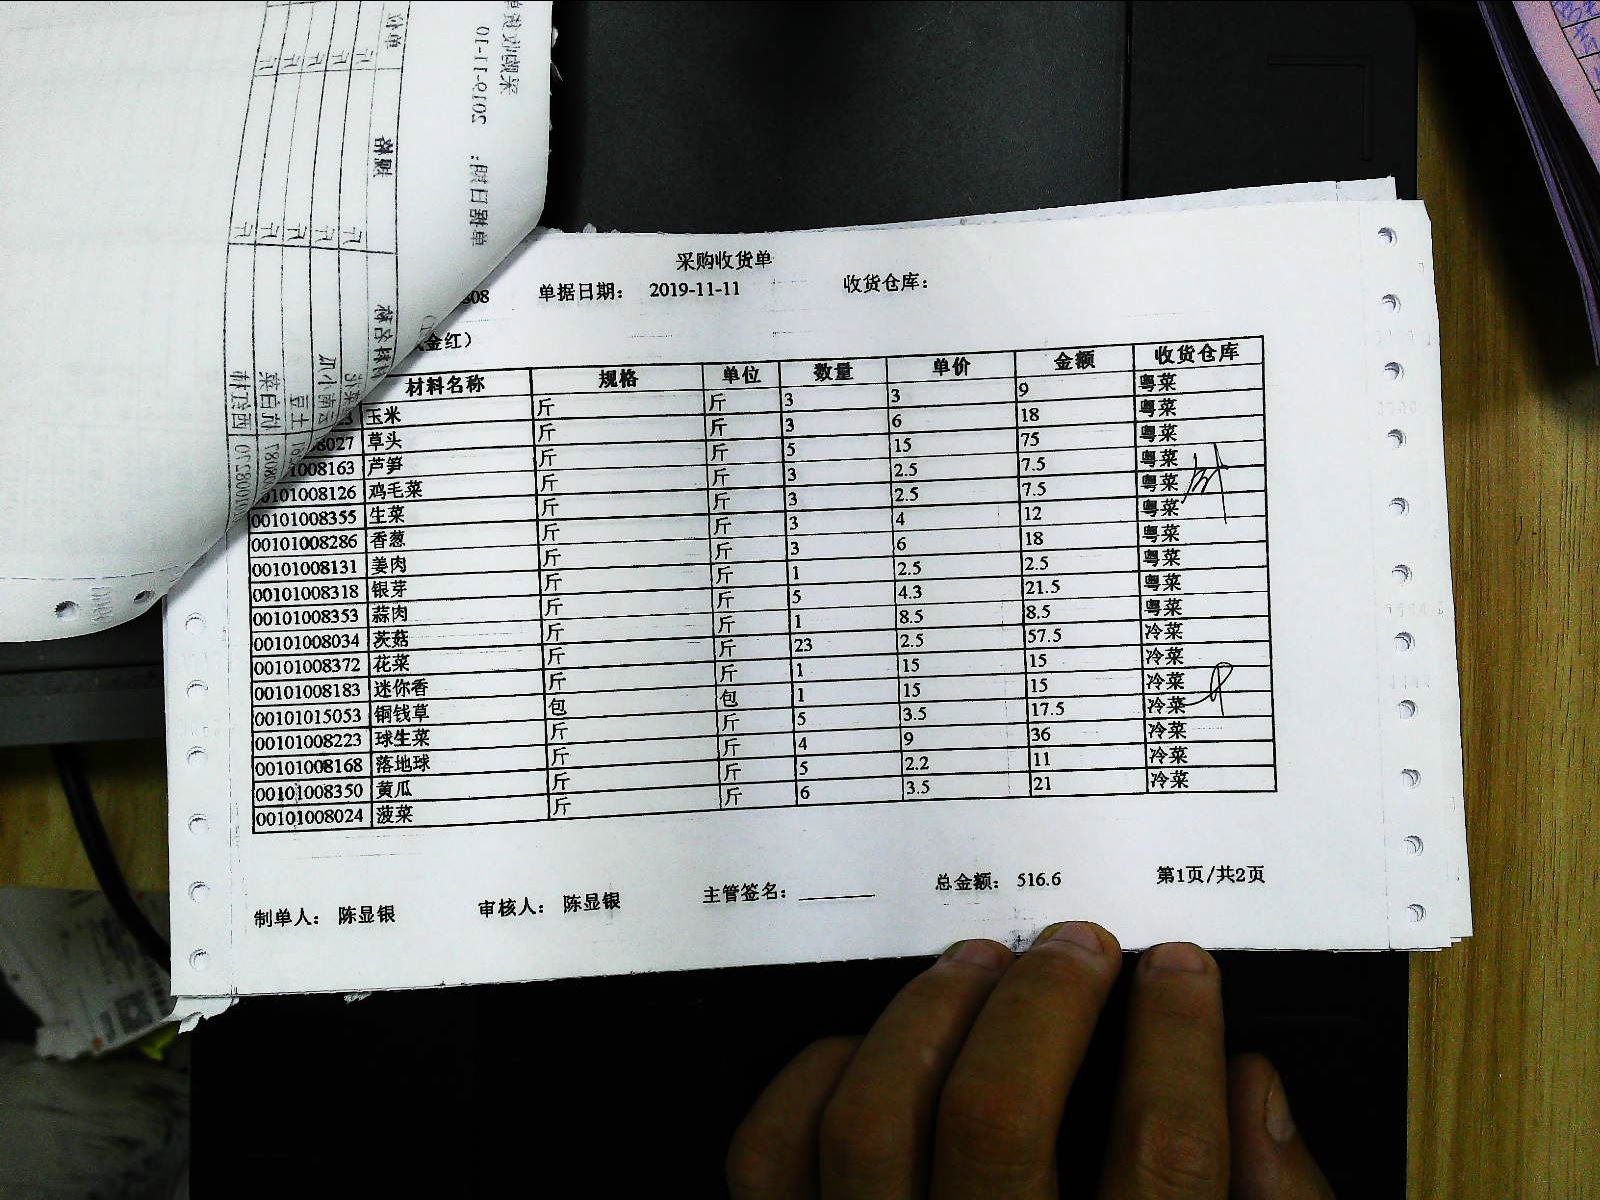 采购收货单
808 单据日期： 2019-11-11 收货仓库：
金红）
材料名称 规格 单位 数量 单价 金额 收货仓库
玉米 斤 斤 3 3 9 粤菜
8027 草头 斤 斤 3 6 18 粤菜
01008163 芦笋 斤 斤 5 15 75 粤菜
0101008126 鸡毛菜 斤 斤 3 2.5 7.5 粤菜
00101008355 生菜 斤 斤 3 2.5 7.5 粤菜
00101008286 香葱 斤 斤 3 4 12 粤菜
00101008131 姜肉 斤 斤 3 6 18 粤菜
00101008318 银芽 斤 斤 1 2.5 2.5 粤菜
00101008353 蒜肉 斤 斤 5 4.3 21.5 粤菜
00101008034 茨菇 斤 斤 1 8.5 8.5 粤菜
00101008372 花菜 斤 斤 23 2.5 57.5 冷菜
00101008183 迷你香 斤 斤 1 15 15 冷菜
00101015053 铜钱草 包 包 1 15 15 冷菜
00101008223 球生菜 斤 斤 5 3.5 17.5 冷菜
00101008168 落地球 斤 斤 4 9 36 冷菜
00101008350 黄瓜 斤 斤 5 2.2 11 冷菜
00101008024 菠菜 斤 斤 6 3.5 21 冷菜
制单人： 陈显银 审核人： 陈显银 主管签名： 总金额： 516.6 第1页/共2页